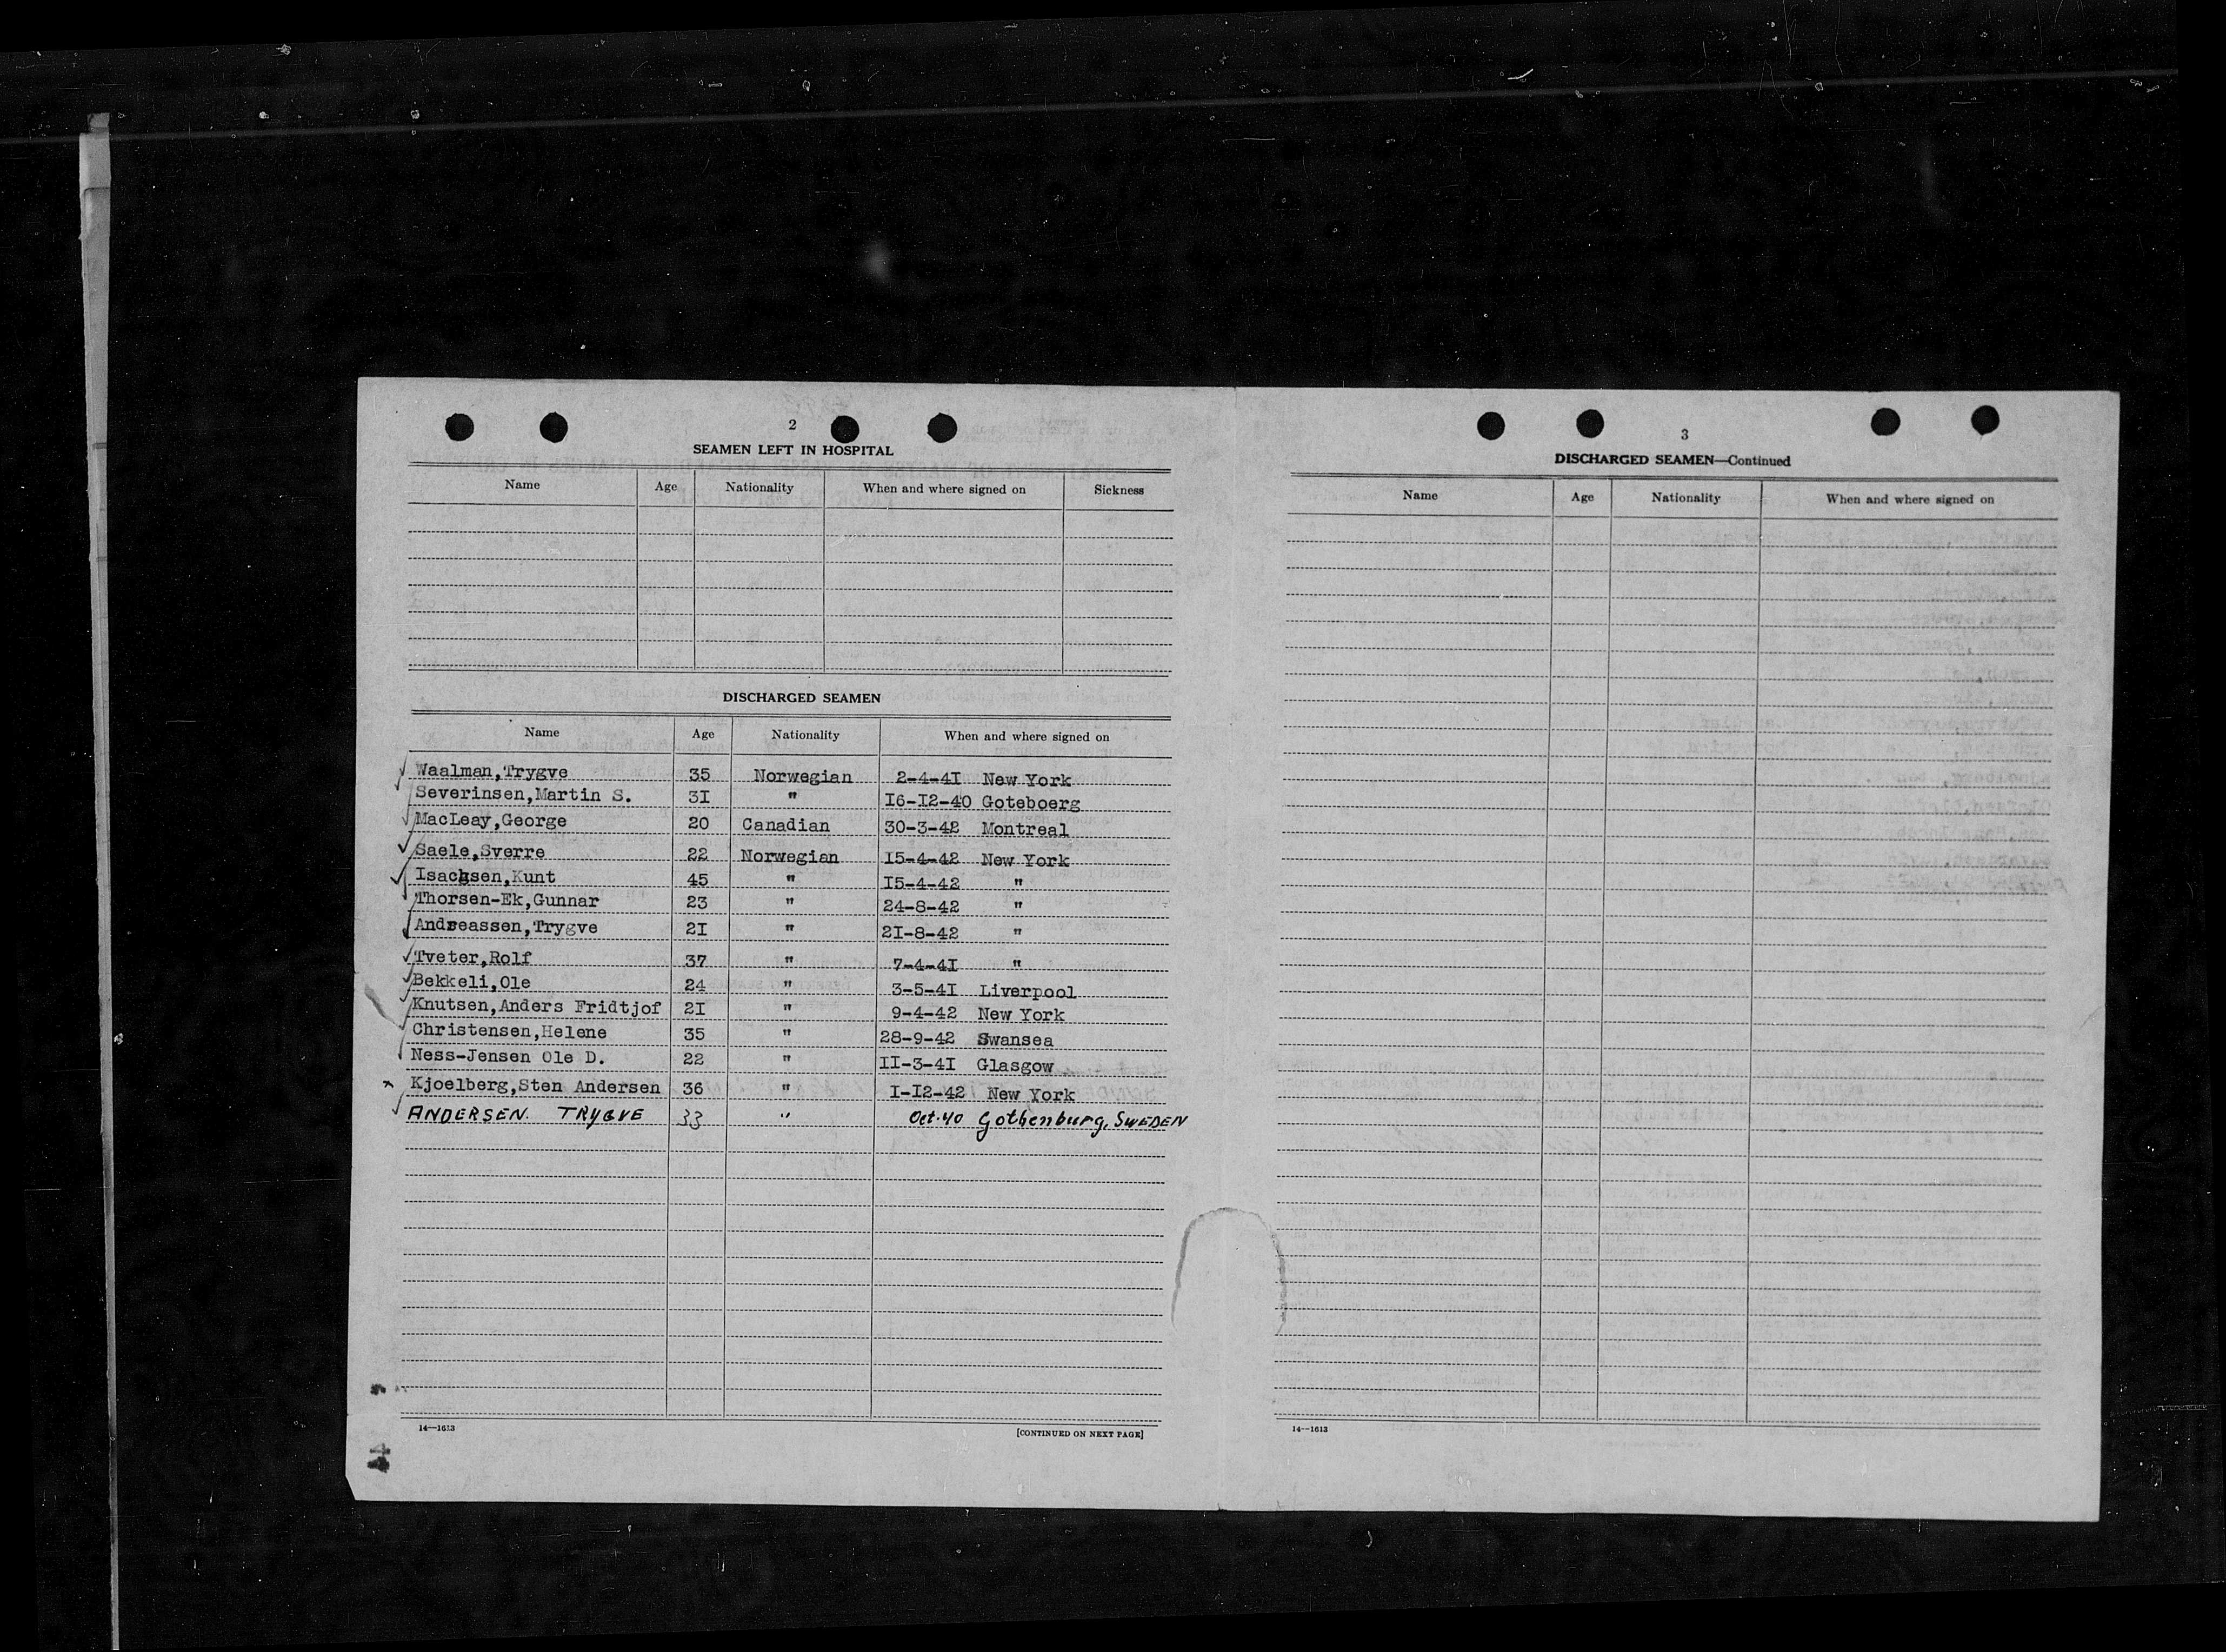 2
SEAMEN LEFT IN HOSPITAL
Name Age Nationality When and where signed on Sickness
DISCHARGED SEAMEN
Name Age Nationality When and where signed on
Waalman,Trygve 35 Norwegian 2-4-41 New York
Severinsen,Martin S. 31 " 16-12-40 Goteboerg
MacLeay,George 20 Canadian 30-3-42 Montreal
Saele,Sverre 22 Norwegian 15-4-42 New York
Isachsen,Kunt 45 " 15-4-42 "
Thorsen-Ek,Gunnar 23 " 24-8-42 "
Andreassen,Trygve 21 " 21-8-42 "
Tveter,Rolf 37 " 7-4-41 "
Bekkeli,Ole 24 " 3-5-41 Liverpool
Knutsen,Anders Fridtjof 21 " 9-4-42 New York
Christensen,Helene 35 " 28-9-42 Swansea
Ness-Jensen Ole D. 22 " 11-3-41 Glasgow
Kjoelberg,Sten Andersen 36 " 1-12-42 New York
ANDERSEN. TRYGVE 33 " Oct.40 Gothenburg, SWEDEN
14—1613 [CONTINUED ON NEXT PAGE]
3
DISCHARGED SEAMEN—Continued
Name Age Nationality When and where signed on
14—1613